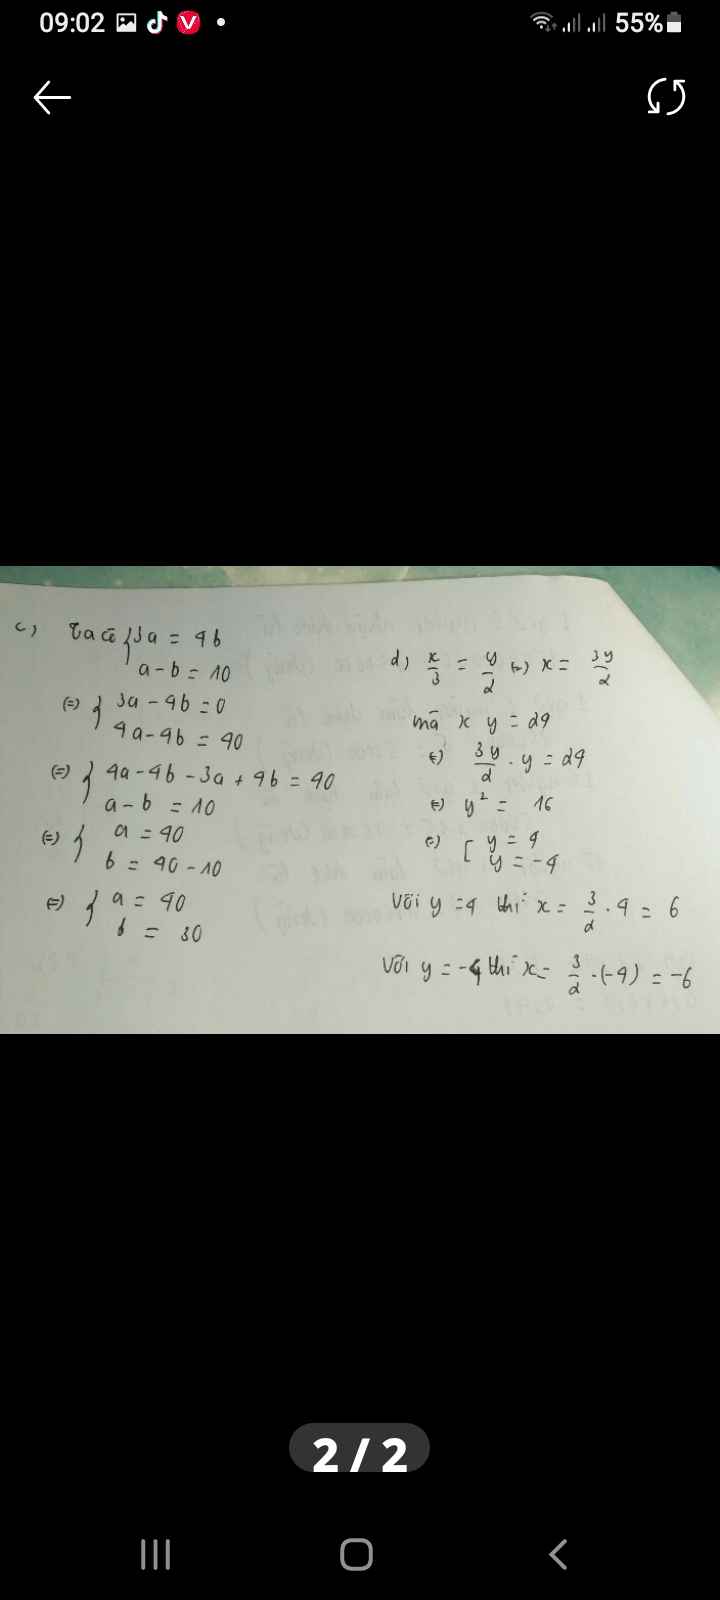 09:02 55%
c) Ta có { 3a = 4b
a - b = 10
(=) { 3a - 4b = 0
4a - 4b = 40
(=) { 4a - 4b - 3a + 4b = 40
a - b = 10
(=) { a = 40
b = 40 - 10
(=) { a = 40
b = 30
d) x/3 = y/2 (=) x = 3y/2
mà x y = 24
(=) 3y/2 . y = 24
(=) y² = 16
(=) [ y = 4
y = -4
Với y = 4 thì x = 3/2 . 4 = 6
Với y = -4 thì x = 3/2 . (-4) = -6
2 / 2